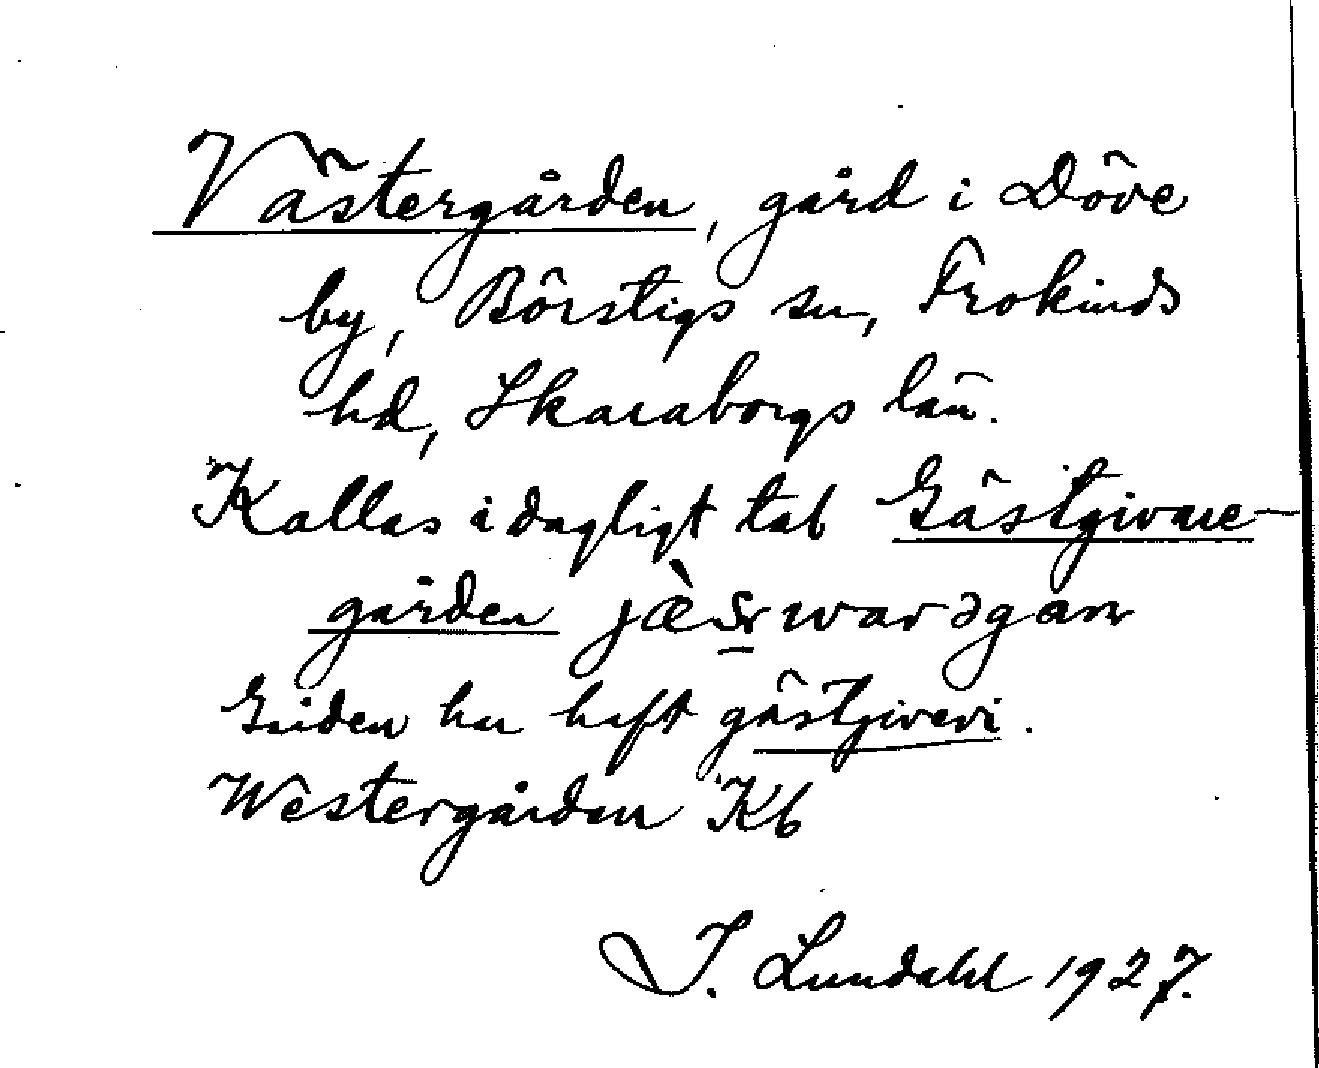 Västergården, gård i Döve
by, Börstigs sn, Frokinds
hd, Skaraborgs län.
Kallas i dagligt tal Gästgivare-
gården
Gården har haft gästgiveri.
Westergården Kb
I. Lundahl 1927.